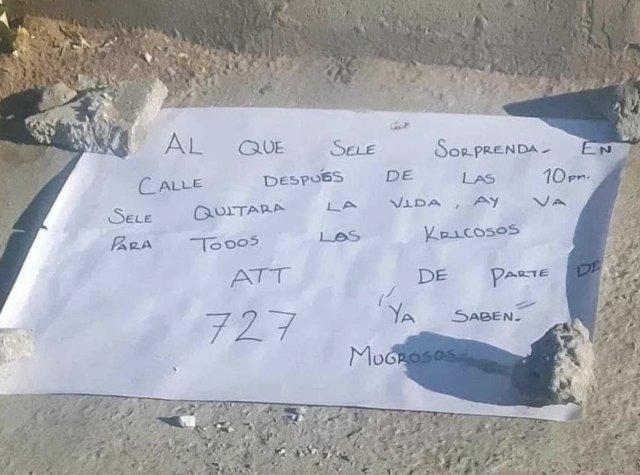 AL QUE SELE SORPRENDA. EN
CALLE DESPUÉS DE LAS 10 pm.
SELE QUITARA LA VIDA, AY VA
PARA TODOS LOS KRICOSOS
ATT DE PARTE DE
727 "YA SABEN."
MUGROSOS